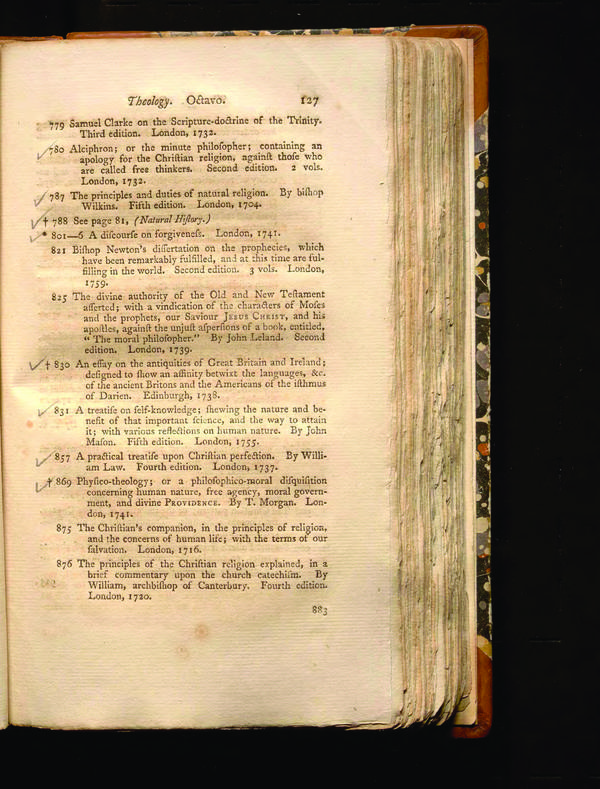 Theology. Octavo. 127
779 Samuel Clarke on the Scripture-doctrine of the Trinity.
Third edition. London, 1732.
780 Alciphron; or the minute philoſopher; containing an
apology for the Chriſtian religion, againſt thoſe who
are called free thinkers. Second edition. 2 vols.
London, 1732.
787 The principles and duties of natural religion. By biſhop
Wilkins. Fifth edition. London, 1704.
† 788 See page 81, (Natural Hiſtory.)
* 801—6 A diſcourſe on forgiveneſs. London, 1741.
821 Biſhop Newton's diſſertation on the prophecies, which
have been remarkably fulfilled, and at this time are ful-
filling in the world. Second edition. 3 vols. London,
1759.
825 The divine authority of the Old and New Teſtament
aſſerted; with a vindication of the characters of Moſes
and the prophets, our Saviour JESUS CHRIST, and his
apoſtles, againſt the unjuſt aſperſions of a book, entitled,
“ The moral philoſopher.” By John Leland. Second
edition. London, 1739.
† 830 An eſſay on the antiquities of Great Britain and Ireland;
deſigned to ſhow an affinity betwixt the languages, &c.
of the ancient Britons and the Americans of the iſthmus
of Darien. Edinburgh, 1738.
831 A treatiſe on ſelf-knowledge; ſhewing the nature and be-
nefit of that important ſcience, and the way to attain
it; with various reflections on human nature. By John
Maſon. Fifth edition. London, 1755.
857 A practical treatiſe upon Chriſtian perfection. By Willi-
am Law. Fourth edition. London, 1737.
† 869 Phyſico-theology; or a philoſophico-moral diſquiſition
concerning human nature, free agency, moral govern-
ment, and divine PROVIDENCE. By T. Morgan. Lon-
don, 1741.
875 The Chriſtian's companion, in the principles of religion,
and the concerns of human life; with the terms of our
ſalvation. London, 1716.
876 The principles of the Chriſtian religion explained, in a
brief commentary upon the church catechiſm. By
William, archbiſhop of Canterbury. Fourth edition.
London, 1720.
883